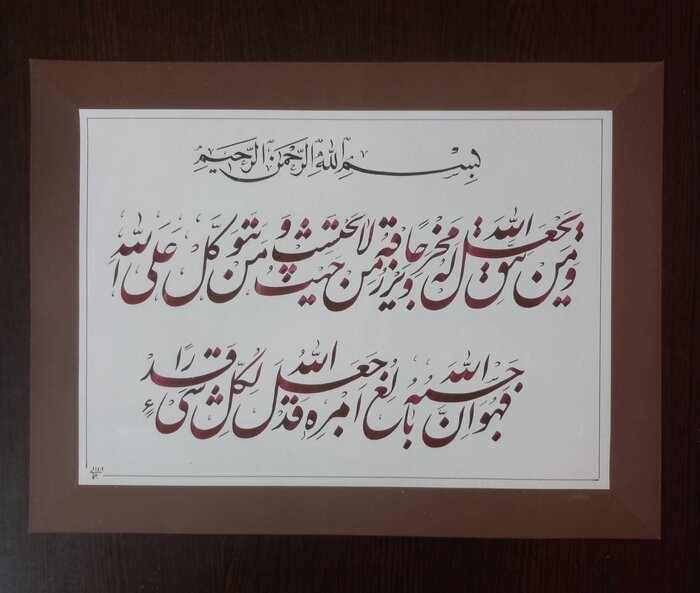 بِسْمِ اللهِ الرَّحْمنِ الرَّحيمِ
وَمَن يَتَّقِ اللهَ يَجْعَل لَهُ مَخْرَجًا وَيَرْزُقهُ مِنْ حَيْثُ لا يَحْتَسِبُ وَ مَنْ يَتَوَكَّلْ عَلَى اللهِ
فَهُوَ حَسْبُهُ اِنَّ اللهَ بالِغُ اَمْرِهِ قَدْ جَعَلَ اللهُ لِكُلِّ شَيْءٍ قَدْرًا